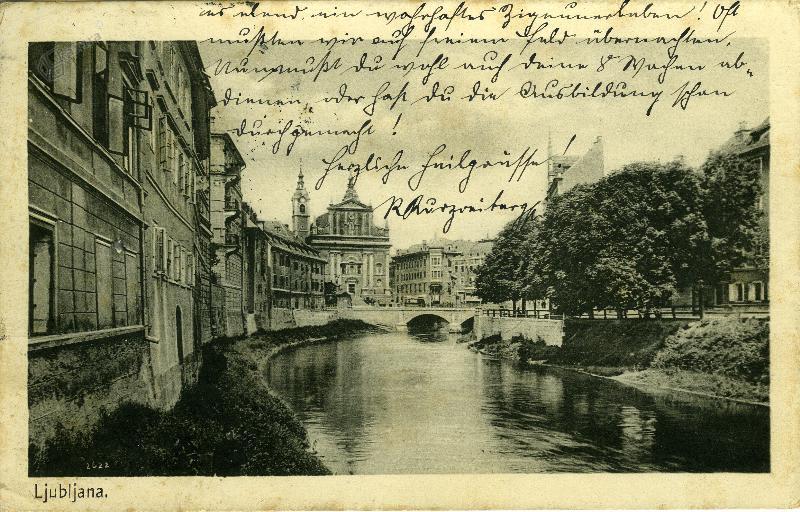 es eben ein wahrhaftes Zigeunerleben! Oft
mußten wir auf freiem Feld übernachten.
Nun mußt Du wohl auch deine 8 Wochen ab-
dienen, oder hast Du die Ausbildung schon
durchgemacht!
Herzliche Heilgrüsse!
R. Kurzreiterg
2622
Ljubljana.